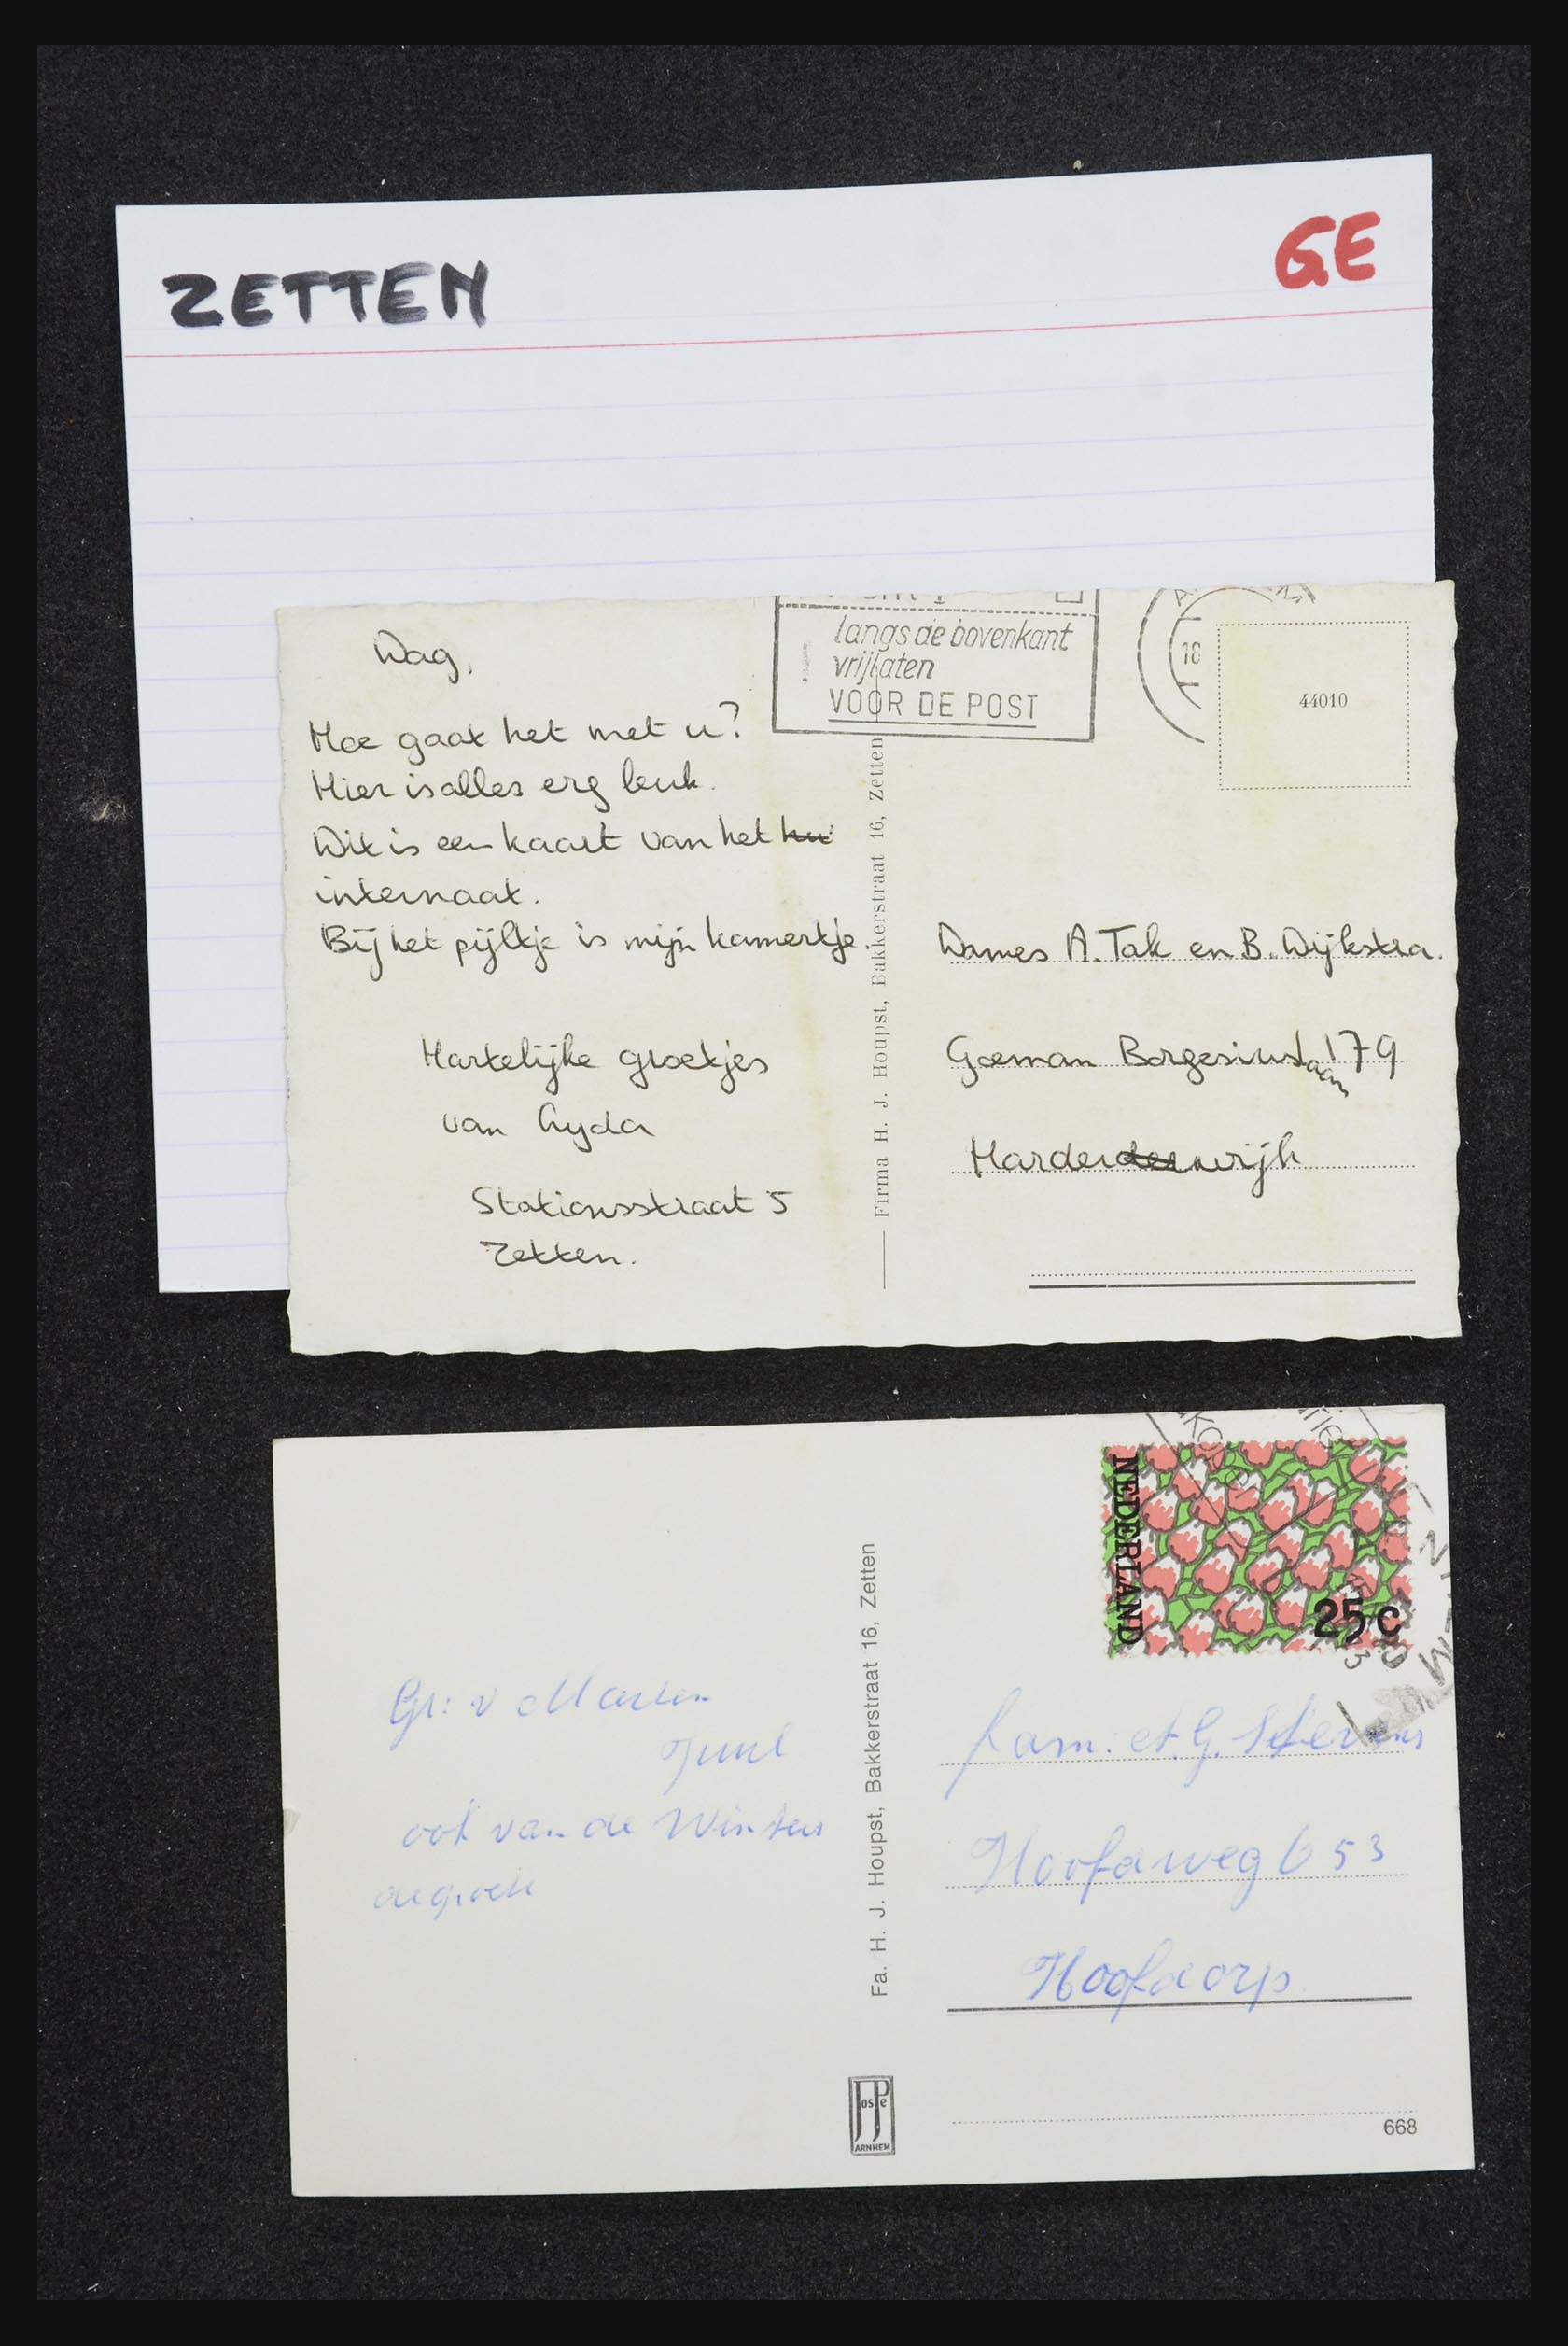 ZETTEN
GE
langs de bovenkant
vrijlaten
VOOR DE POST
18
44010
Dag,
Hoe gaat het met u?
Hier is alles erg leuk.
Dit is een kaart van het
internaat.
Bij het pijltje is mijn kamertje.
Hartelijke groetjes
van Lyda
Stationsstraat 5
Zetten.
Firma H. J. Houpst, Bakkerstraat 16, Zetten
Dames A. Tak en B. Dijkstra.
Goeman Borgesiuslaan 179
Harderwijk
NEDERLAND
25 c
Gr: v
ook van de Winters
de groeten
Fa. H. J. Houpst, Bakkerstraat 16, Zetten
Fam: A. G. Stevens
Hoofdweg 653
Hoofdorp
JosPe
ARNHEM
668